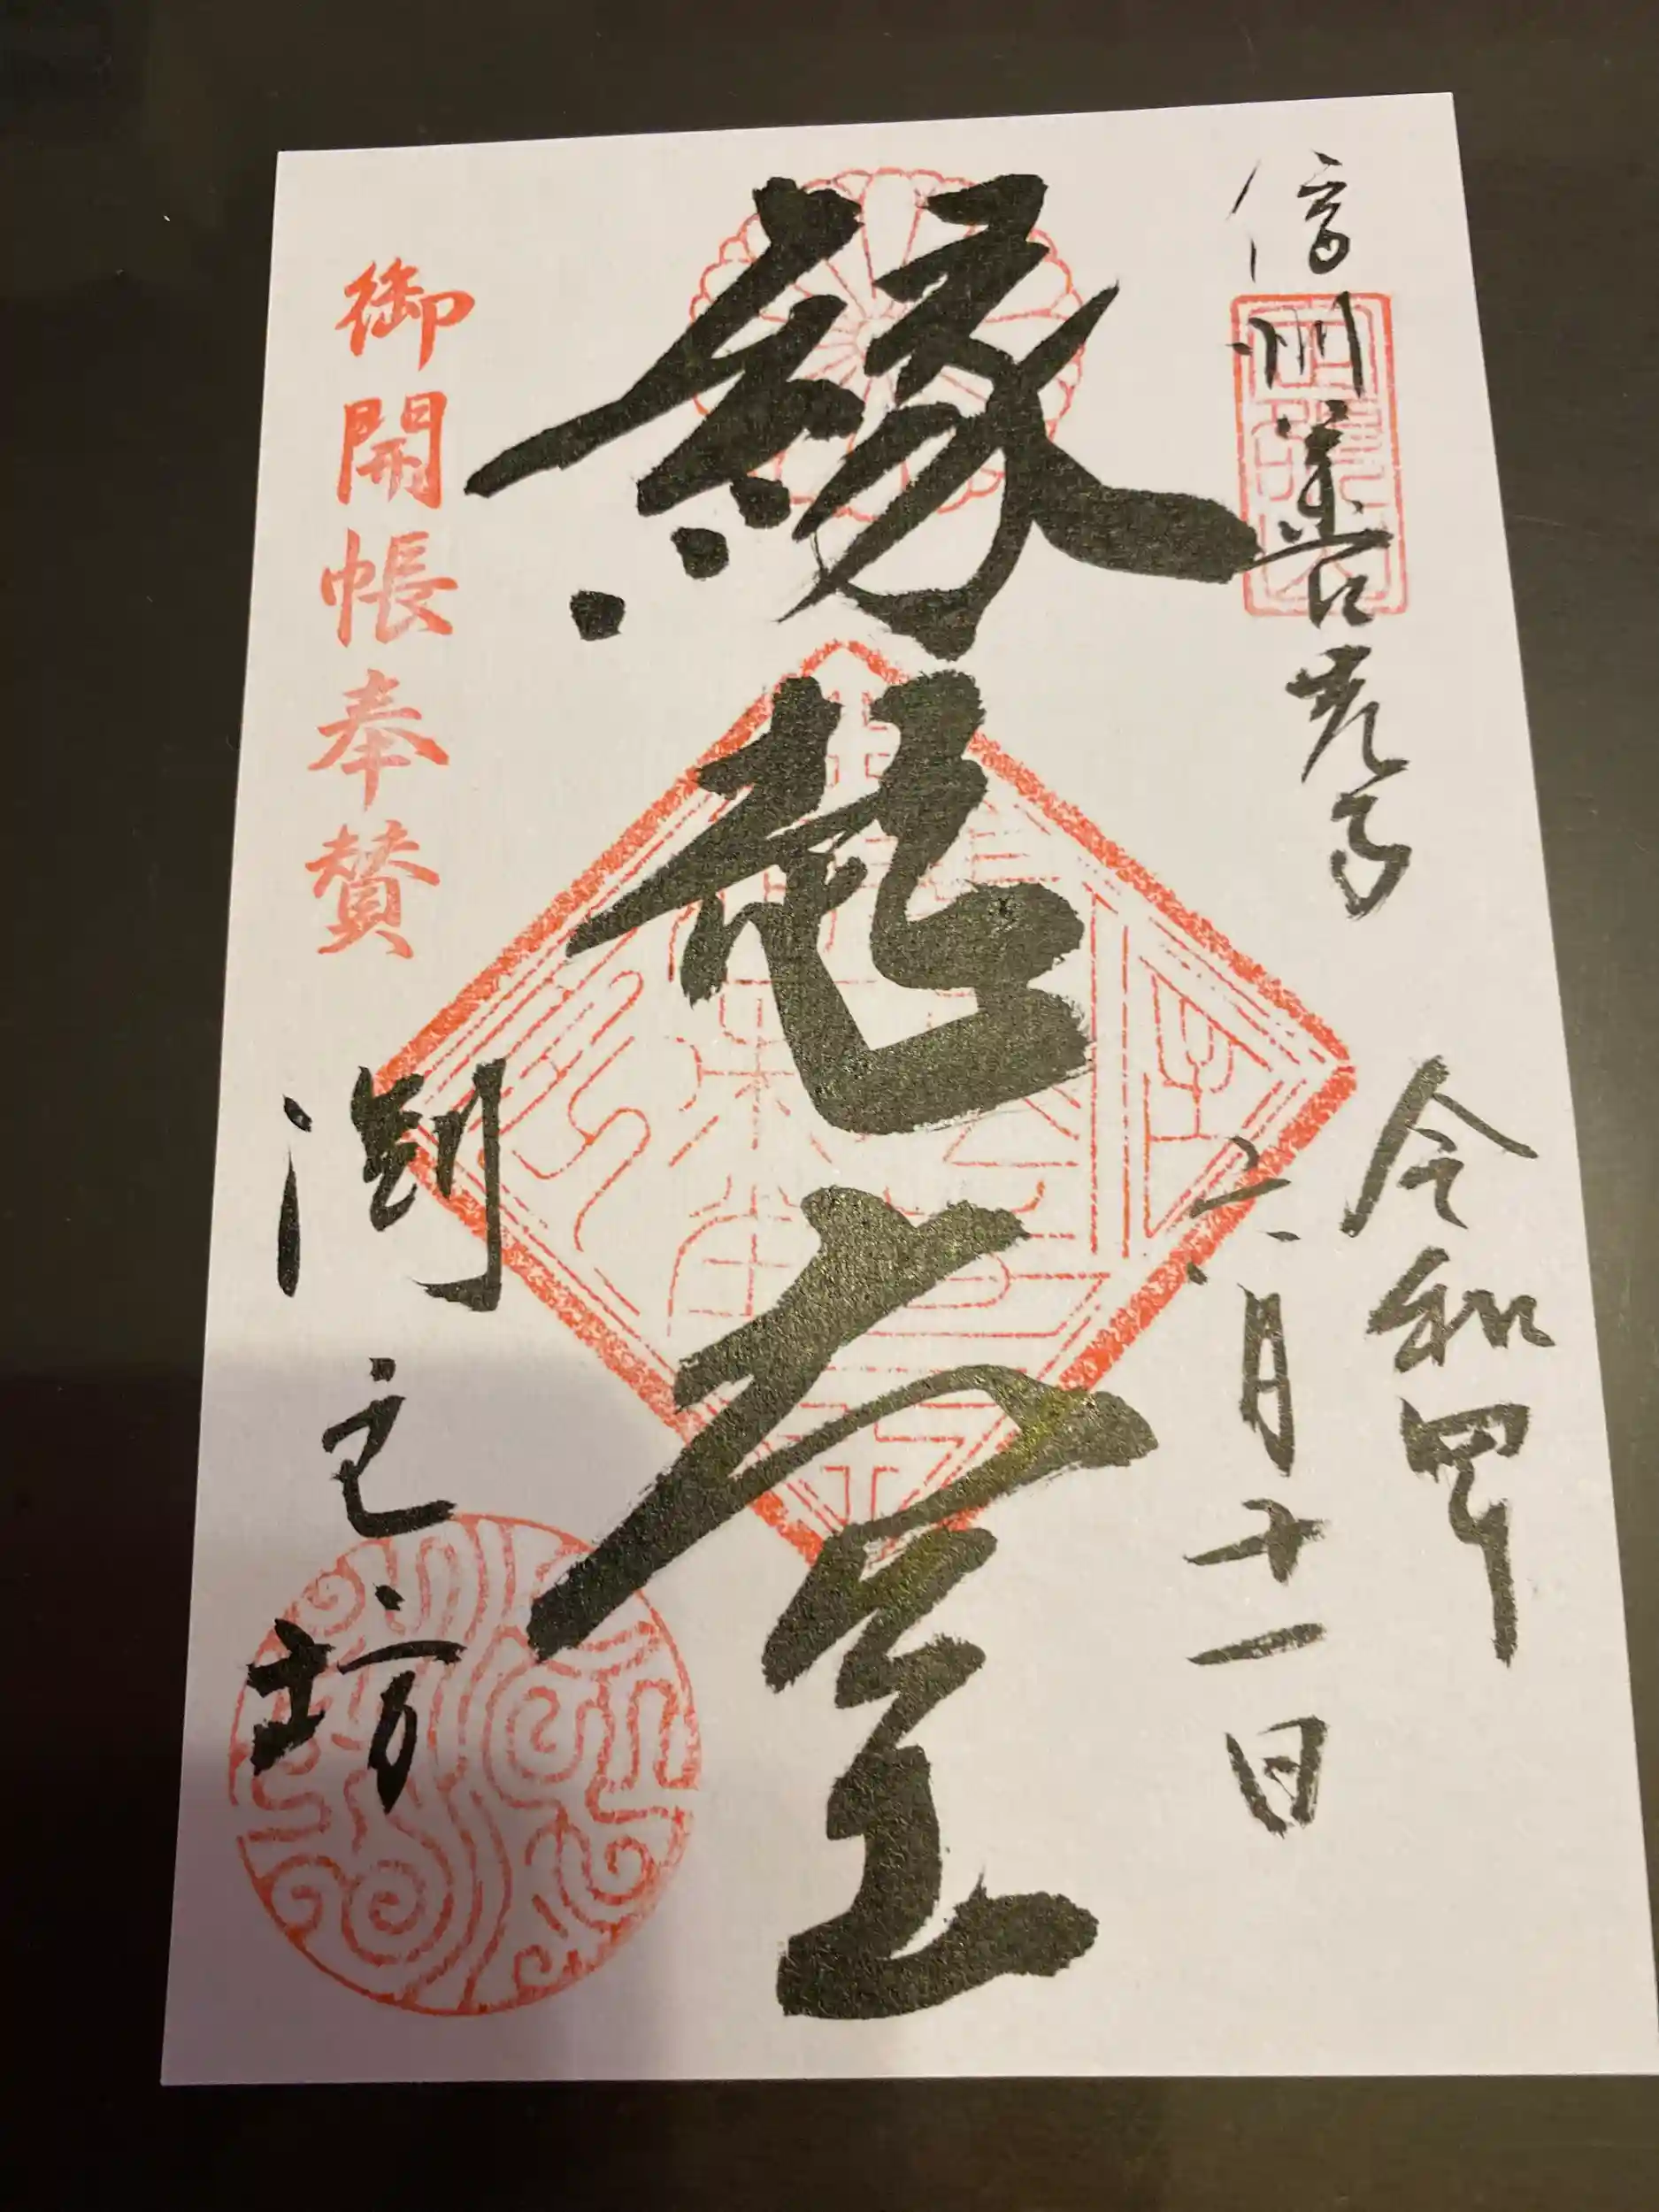 信州善光寺
令和四
六月十一日
縁起堂
御開帳奉賛
渕之坊